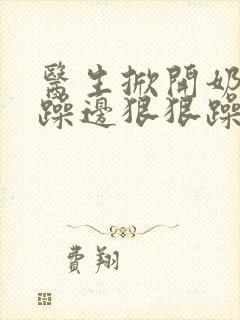 醫生掀開奶
躁邊狠狠躁
費翔